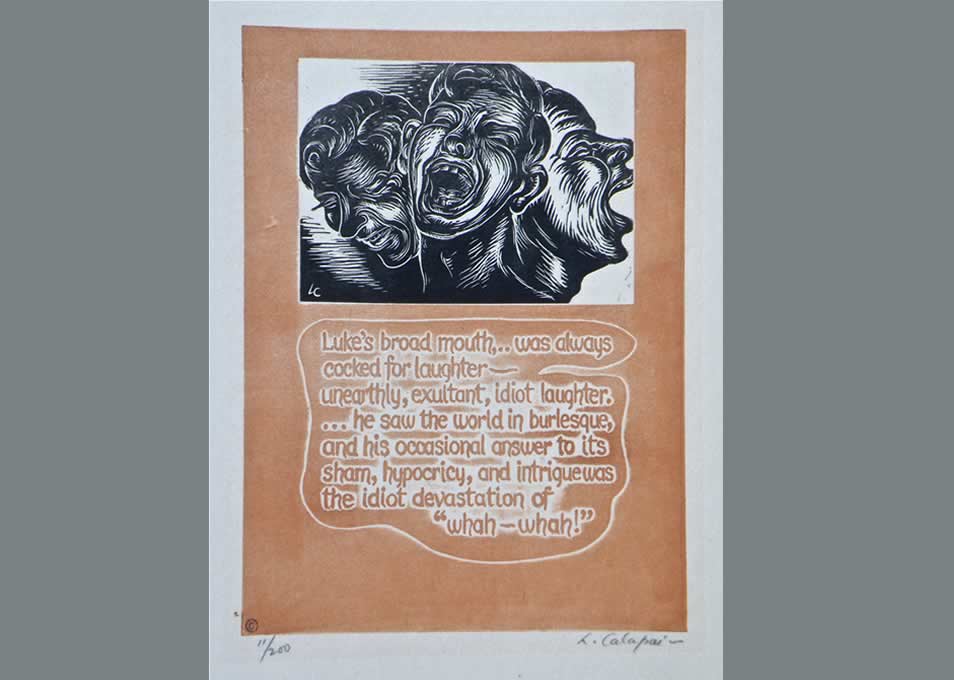 LC
Luke's broad mouth,.. was always
cocked for laughter—
unearthly, exultant, idiot laughter.
... he saw the world in burlesque,
and his occasional answer to its
sham, hypocricy, and intrigue was
the idiot devastation of
"whah—whah!"
©
11/200 L. Calapai